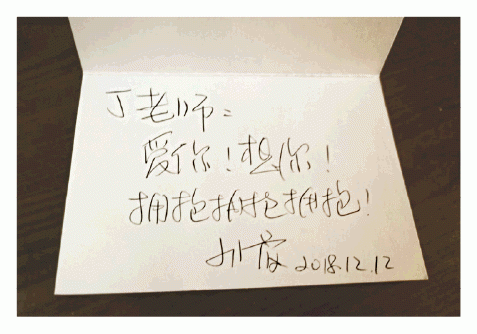 丁老师：
爱你！想你！
拥抱拥抱拥抱！
2018.12.12